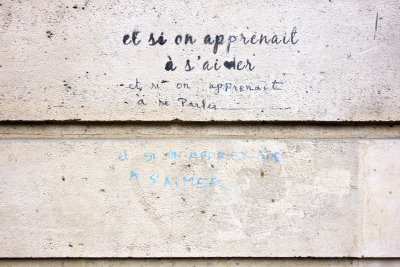 et si on apprenait
à s'aider
et si on apprenait
à se Parler
et si on apprenais
A S'AIMER